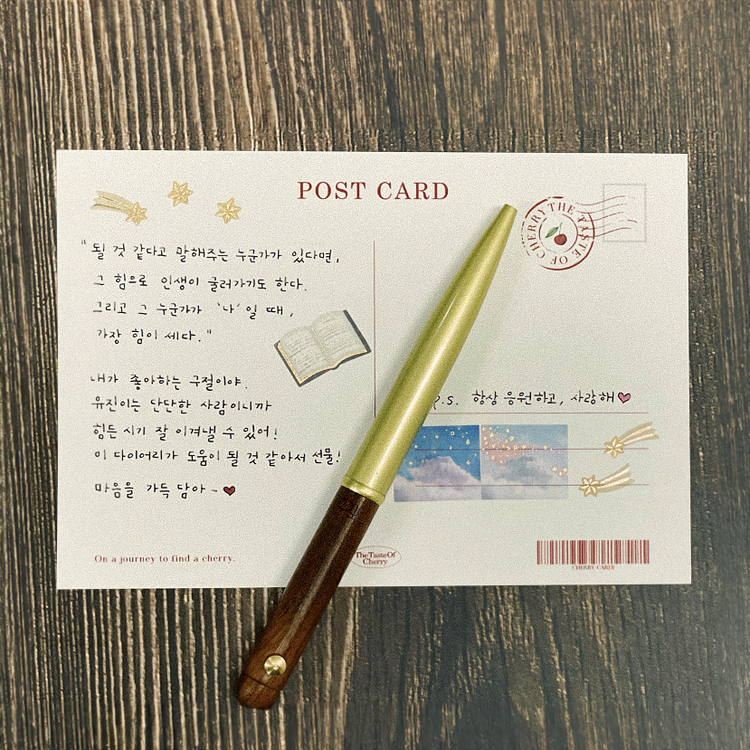 POST CARD
CHERRY THE TASTE OF CHERRY
"될 것 같다고 말해주는 누군가가 있다면,
그 힘으로 인생이 굴러가기도 한다.
그리고 그 누군가가 '나'일 때,
가장 힘이 세다."
내가 좋아하는 구절이야.
유진이는 단단한 사람이니까
힘든 시기 잘 이겨낼 수 있어!
이 다이어리가 도움이 될 것 같아서 선물!
마음을 가득 담아~
P.S. 항상 응원하고, 사랑해
On a journey to find a cherry.
The Taste Of
Cherry
CHERRY CARD